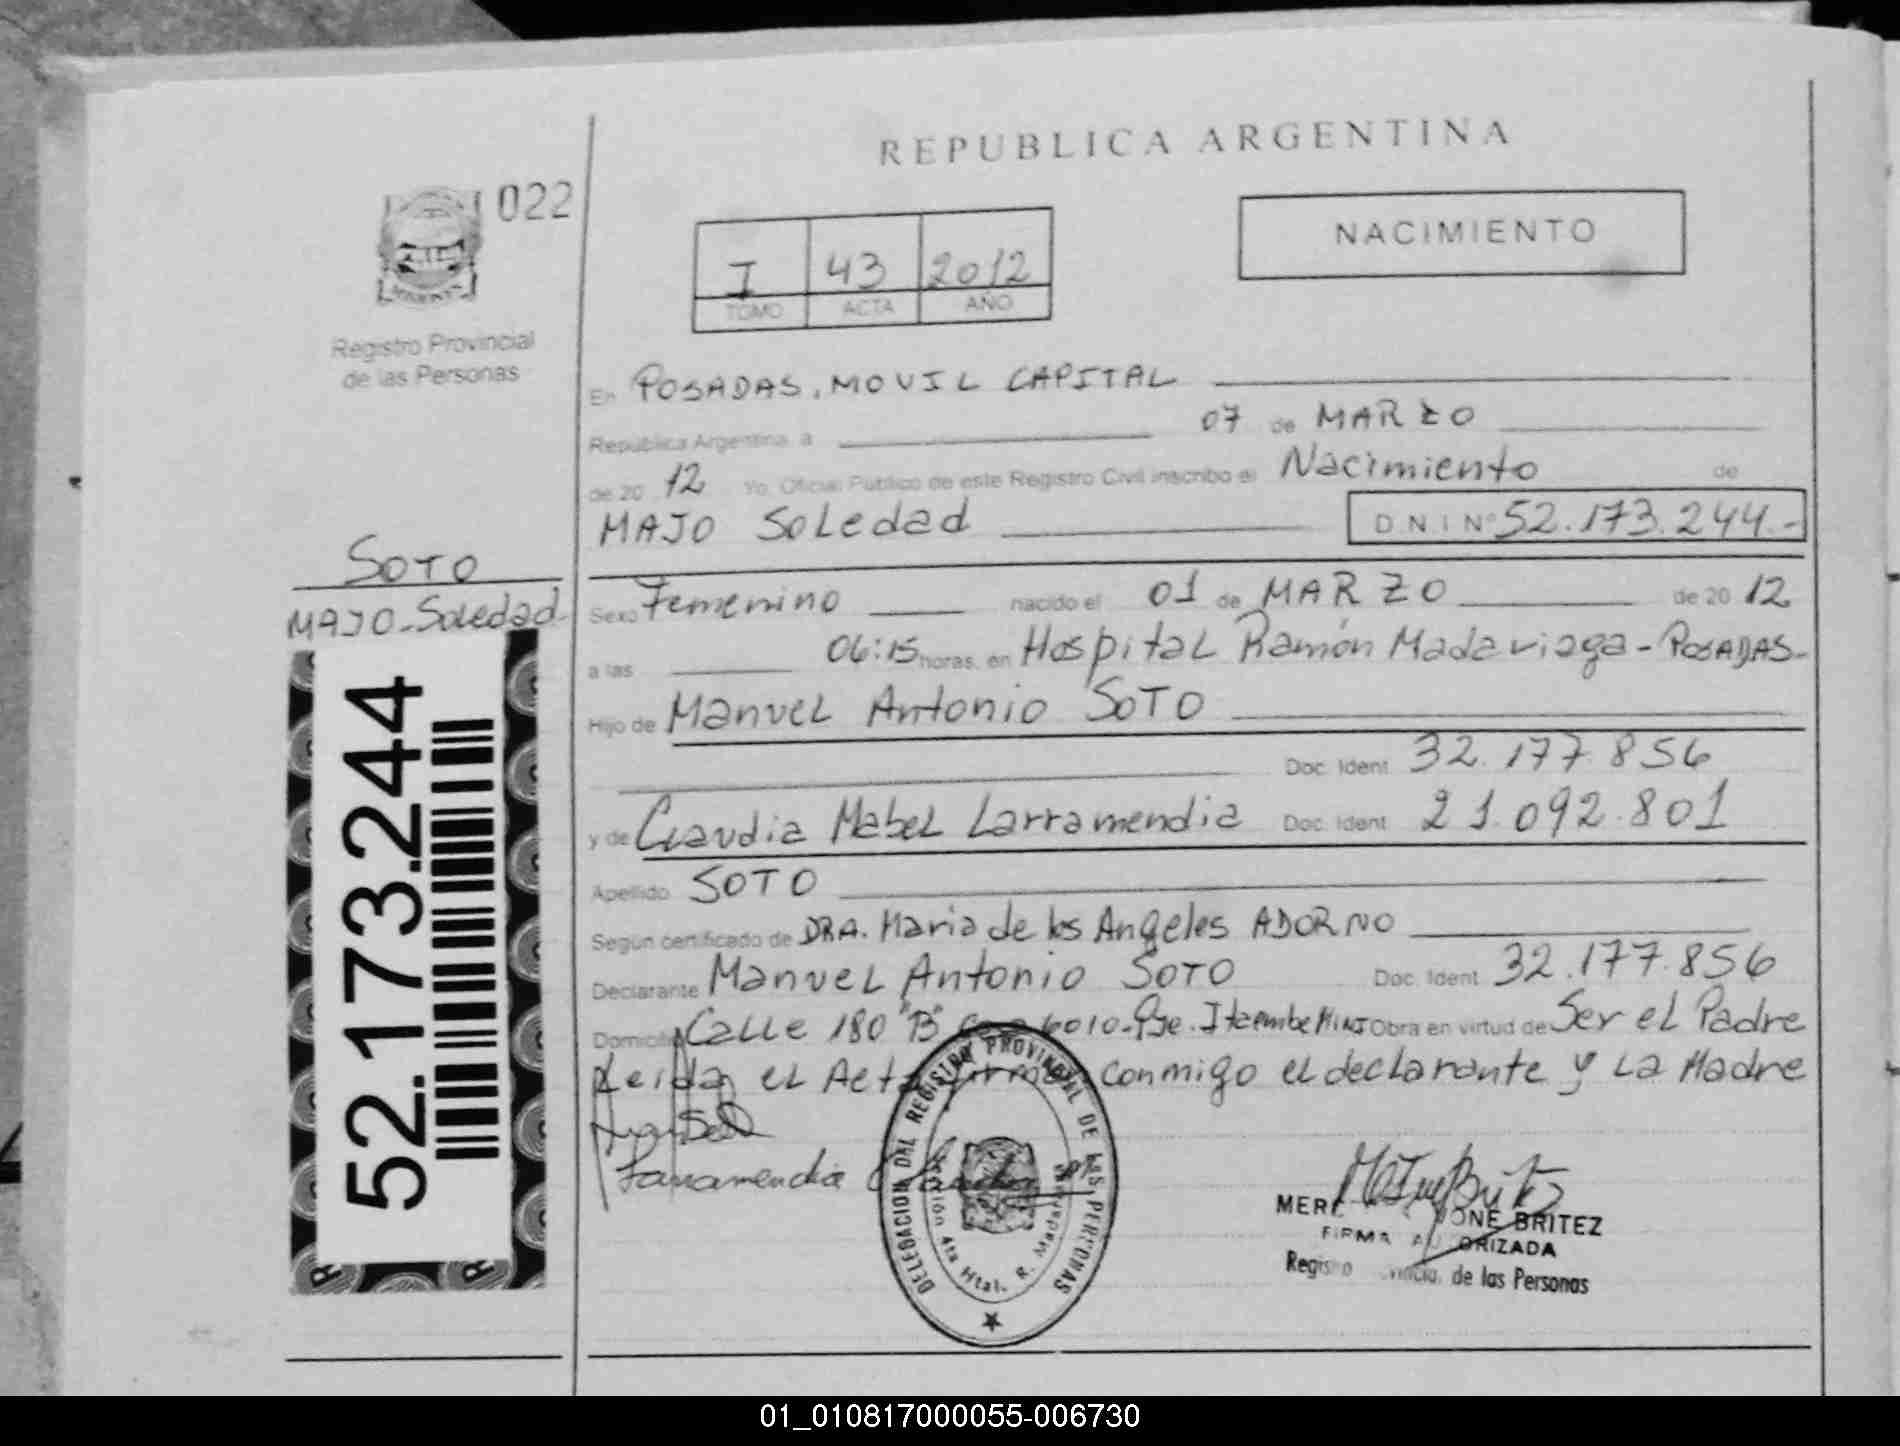 REPUBLICA ARGENTINA
022
NACIMIENTO
I 43 2012
TOMO ACTA AÑO
Registro Provincial
de las Personas
En POSADAS, MOVIL CAPITAL
República Argentina a 07 de MARZO
de 20 12 Yo, Oficial Público de este Registro Civil inscribo el Nacimiento de
MAJO SoLedad D N I Nº 52.173.244.-
SOTO
MAJO-Soledad-
Sexo Femenino nacido el 01 de MARZO de 20 12
a las 06:15 horas, en Hospital Ramón Madaviaga - POSADAS-
Hijo de Manuel Antonio SOTO
Doc. Ident. 32.177.856
y de Claudia Mabel Larramendia Doc. Ident. 21.092.801
Apellido SOTO
Según certificado de DRA. Maria de los Angeles ADORNO
Declarante Manuel Antonio SOTO Doc. Ident. 32.177.856
Domicilio Calle 180 "B" 6010-Pje. Itaembe Mini Obra en virtud de Ser el Padre
Leida el Acta conmigo el declarante y La Madre
Larramendia
52.173.244
DELEGACION DAL REGISTRO PROVINCIAL DE LAS PERSONAS
4ta Htal. R. Madariaga
BRITEZ
FIRMA AUTORIZADA
Registro Provincial de las Personas
01_010817000055-006730